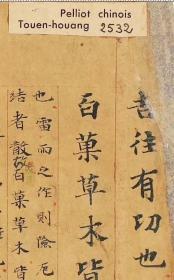 Pelliot chinois
Touen-houang 2532
吉往有功也
百菓草木皆
也雷雨之作則險厄
结者散皆百菓草木皆